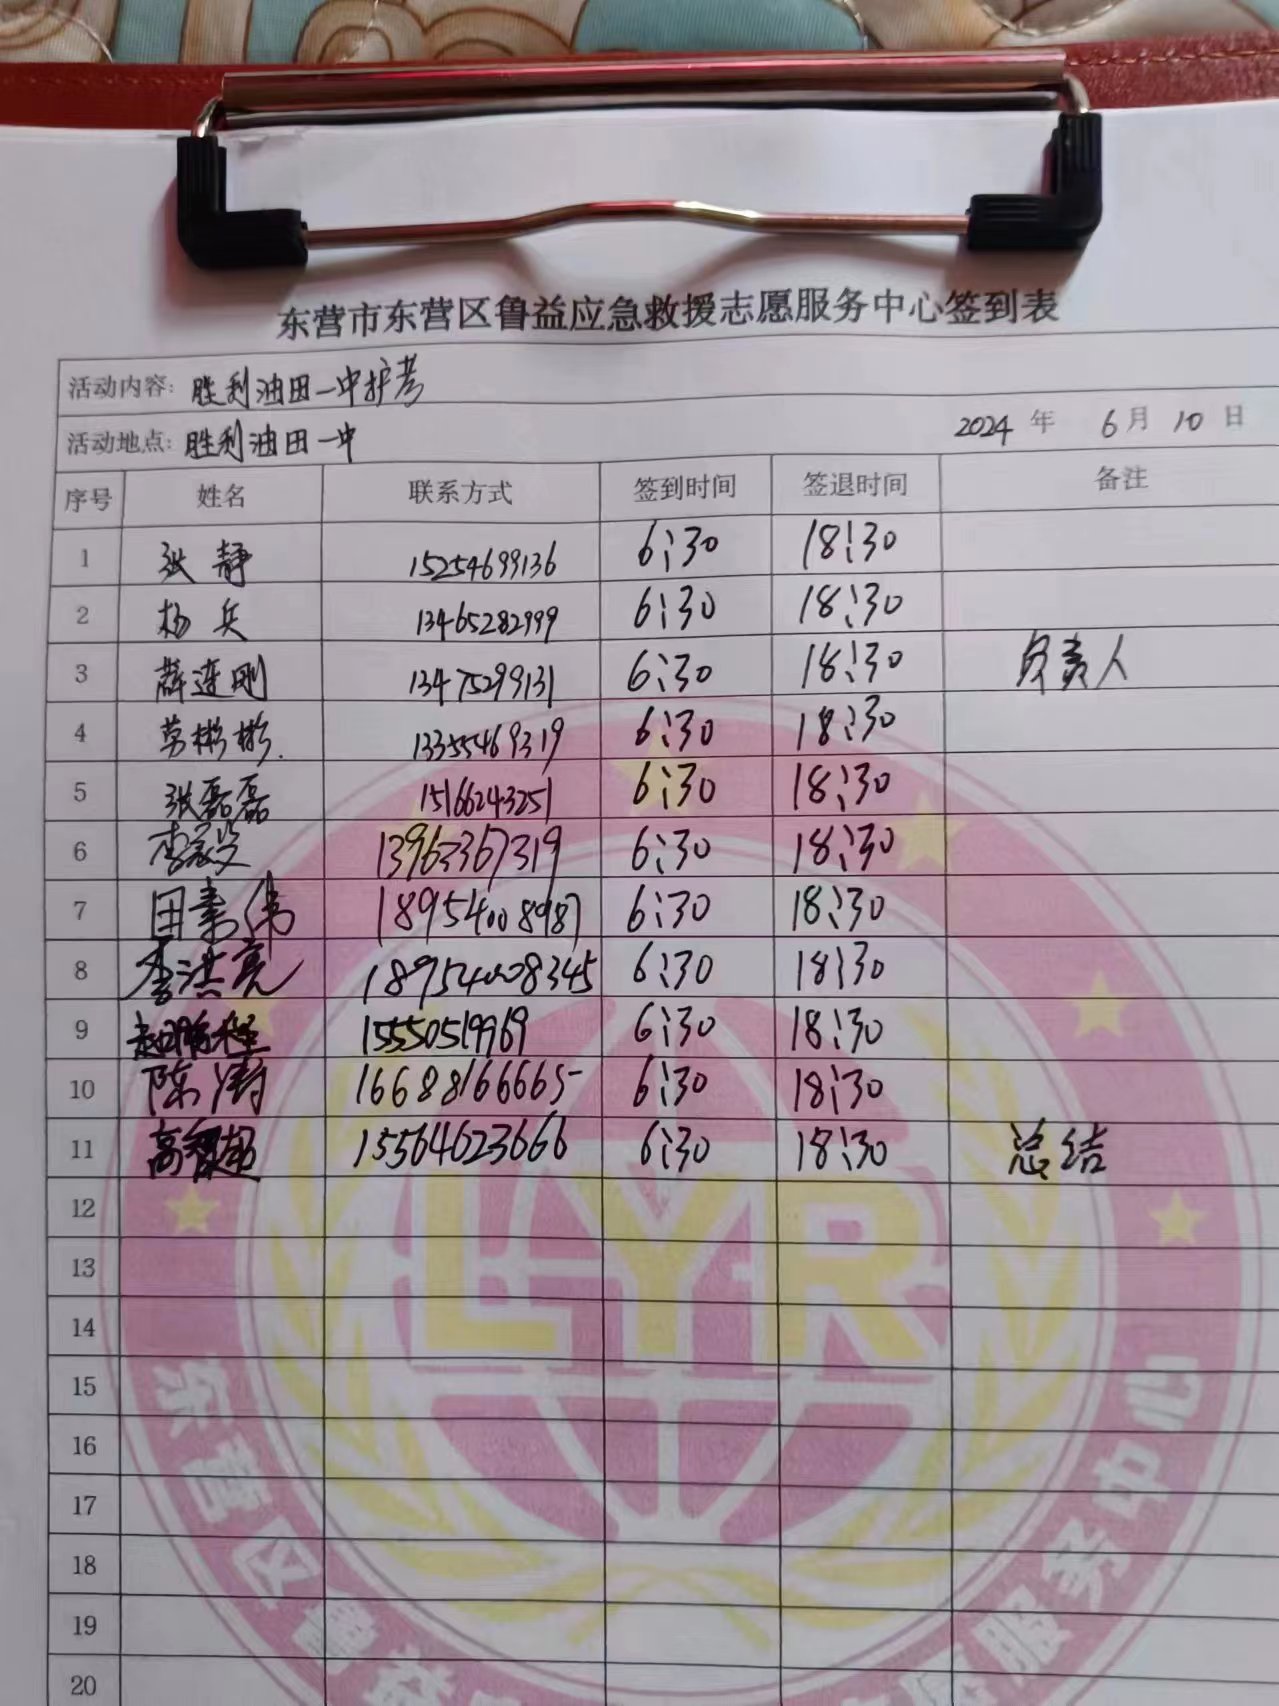 东营市东营区鲁益应急救援志愿服务中心签到表
活动内容: 胜利油田一中护考
活动地点: 胜利油田一中 2024 年 6 月 10 日
序号 姓名 联系方式 签到时间 签退时间 备注
1 张静 15254699136 6:30 18:30
2 杨兵 13465282999 6:30 18:30
3 薛连刚 13475299131 6:30 18:30 负责人
4 彬彬 13355469319 6:30 18:30
5 张磊磊 15166243251 6:30 18:30
6 李 13963367319 6:30 18:30
7 田素伟 18954008987 6:30 18:30
8 李洪亮 18954008345 6:30 18:30
9 赵鹏程 15550519969 6:30 18:30
10 陈涛 16688166665 6:30 18:30
11 高 超 15564623666 6:30 18:30 总结
12
13
14
15
16
17
18
19
20
LYR
东营区鲁益 服务中心